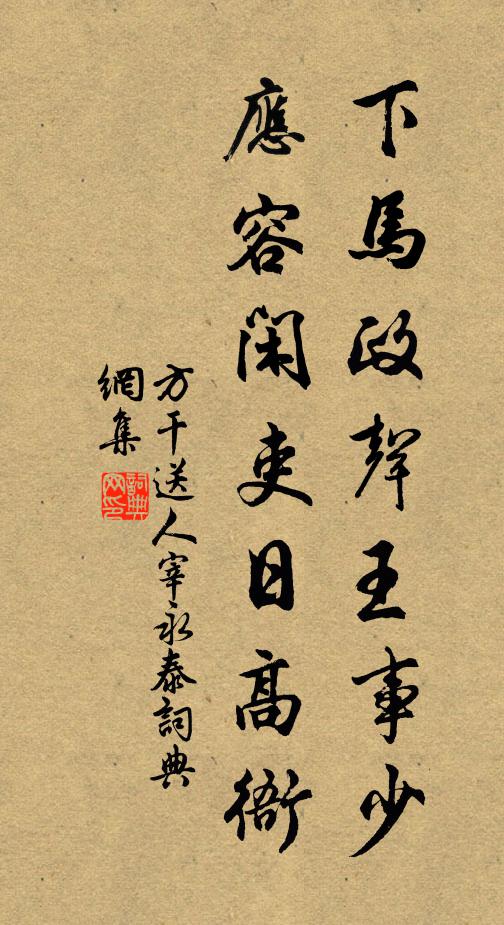 下馬政聲王事少
應容閑吏日高衙
方干送人宰永泰詞典
網集
詞典網印